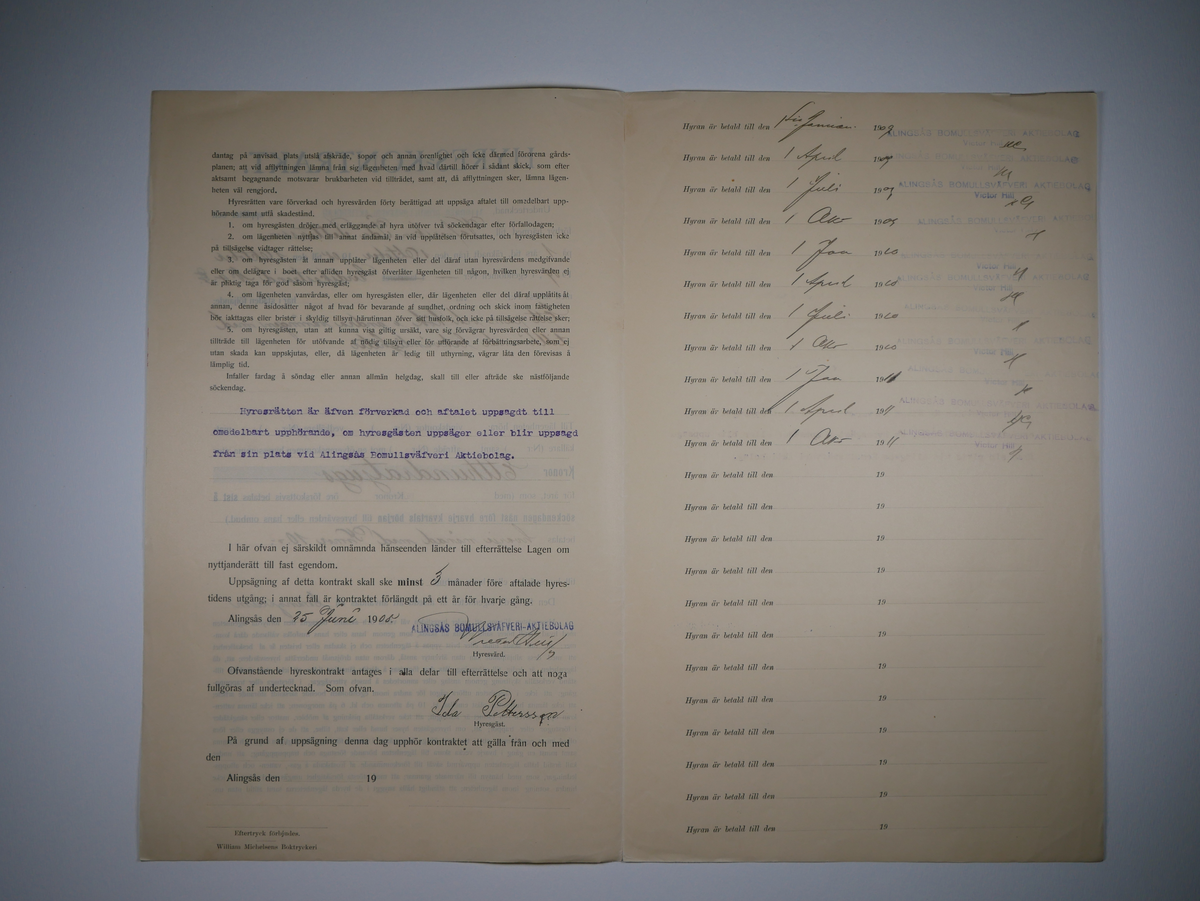 dantag på anvisad plats utslå afskräde, sopor och annan orenlighet och icke därmed förorena gårds-
planen; att vid afflyttningen lämna från sig lägenheten med hvad därtill hörer i sådant skick, som efter
aktsamt begagnande motsvarar brukbarheten vid tillträdet, samt att, då afflyttningen sker, lämna lägen-
heten väl rengjord.
Hyresrätten vare förverkad och hyresvärden förty berättigad att uppsäga aftalet till omedelbart upp-
hörande samt utfå skadestånd.
1. om hyresgästen dröjer med erläggande af hyra utöfver två söckendagar efter förfallodagen;
2. om lägenheten nyttjas till annat ändamål, än vid upplåtelsen förutsattes, och hyresgästen icke
på tillsägelse vidtager rättelse;
3. om hyresgästen åt annan upplåter lägenheten eller del däraf utan hyresvärdens medgifvande
eller om delägare i boet efter afliden hyresgäst öfverlåter lägenheten till någon, hvilken hyresvärden ej
är pliktig taga för god såsom hyresgäst;
4. om lägenheten vanvårdas, eller om hyresgästen eller, där lägenheten eller del däraf upplåtits åt
annan, denne åsidosätter något af hvad för bevarande af sundhet, ordning och skick inom fastigheten
bör iakttagas eller brister i skyldig tillsyn härutinnan öfver sitt husfolk, och icke på tillsägelse rättelse sker;
5. om hyresgästen, utan att kunna visa giltig ursäkt, vare sig förvägrar hyresvärden eller annan
tillträde till lägenheten för utöfvande af nödig tillsyn eller för utförande af förbättringsarbete, som ej
utan skada kan uppskjutas, eller, då lägenheten är ledig till uthyrning, vägrar låta den förevisas å
lämplig tid.
Infaller fardag å söndag eller annan allmän helgdag, skall till eller afträde ske nästföljande
söckendag.
Hyresrätten är äfven förverkad och aftalet uppsagdt till
omedelbart upphörande, om hyresgästen uppsäger eller blir uppsagd
från sin plats vid Alingsås Bomullsväfveri Aktiebolag.
I här ofvan ej särskildt omnämnda hänseenden länder till efterrättelse Lagen om
nyttjanderätt till fast egendom.
Uppsägning af detta kontrakt skall ske minst 3 månader före aftalade hyres-
tidens utgång; i annat fall är kontraktet förlängdt på ett år för hvarje gång.
Alingsås den 25 Juni 1908.
ALINGSÅS BOMULLSVÄFVERI-AKTIEBOLAG
Hyresvärd.
Ofvanstående hyreskontrakt antages i alla delar till efterrättelse och att noga
fullgöras af undertecknad. Som ofvan.
Ida Pettersson
Hyresgäst.
På grund af uppsägning denna dag upphör kontraktet att gälla från och med
den
Alingsås den 19
Eftertryck förbjudes.
William Michelsens Boktryckeri
Hyran är betald till den Januari 1909 ALINGSÅS BOMULLSVÄFVERI AKTIEBOLAG
Hyran är betald till den 1 April 1909
Hyran är betald till den 1 Juli 1909 ALINGSÅS BOMULLSVÄFVERI AKTIEBOLAG
Victor Hill
Hyran är betald till den 1 Okt 1909
Hyran är betald till den 1 Jan 1910
Hyran är betald till den 1 April 1910
Hyran är betald till den 1 Juli 1910
Hyran är betald till den 1 Okt 1910
Hyran är betald till den 1 Jan 1911
Hyran är betald till den 1 April 1911
Hyran är betald till den 1 Okt 1911
Hyran är betald till den 19
Hyran är betald till den 19
Hyran är betald till den 19
Hyran är betald till den 19
Hyran är betald till den 19
Hyran är betald till den 19
Hyran är betald till den 19
Hyran är betald till den 19
Hyran är betald till den 19
Hyran är betald till den 19
Hyran är betald till den 19
Hyran är betald till den 19